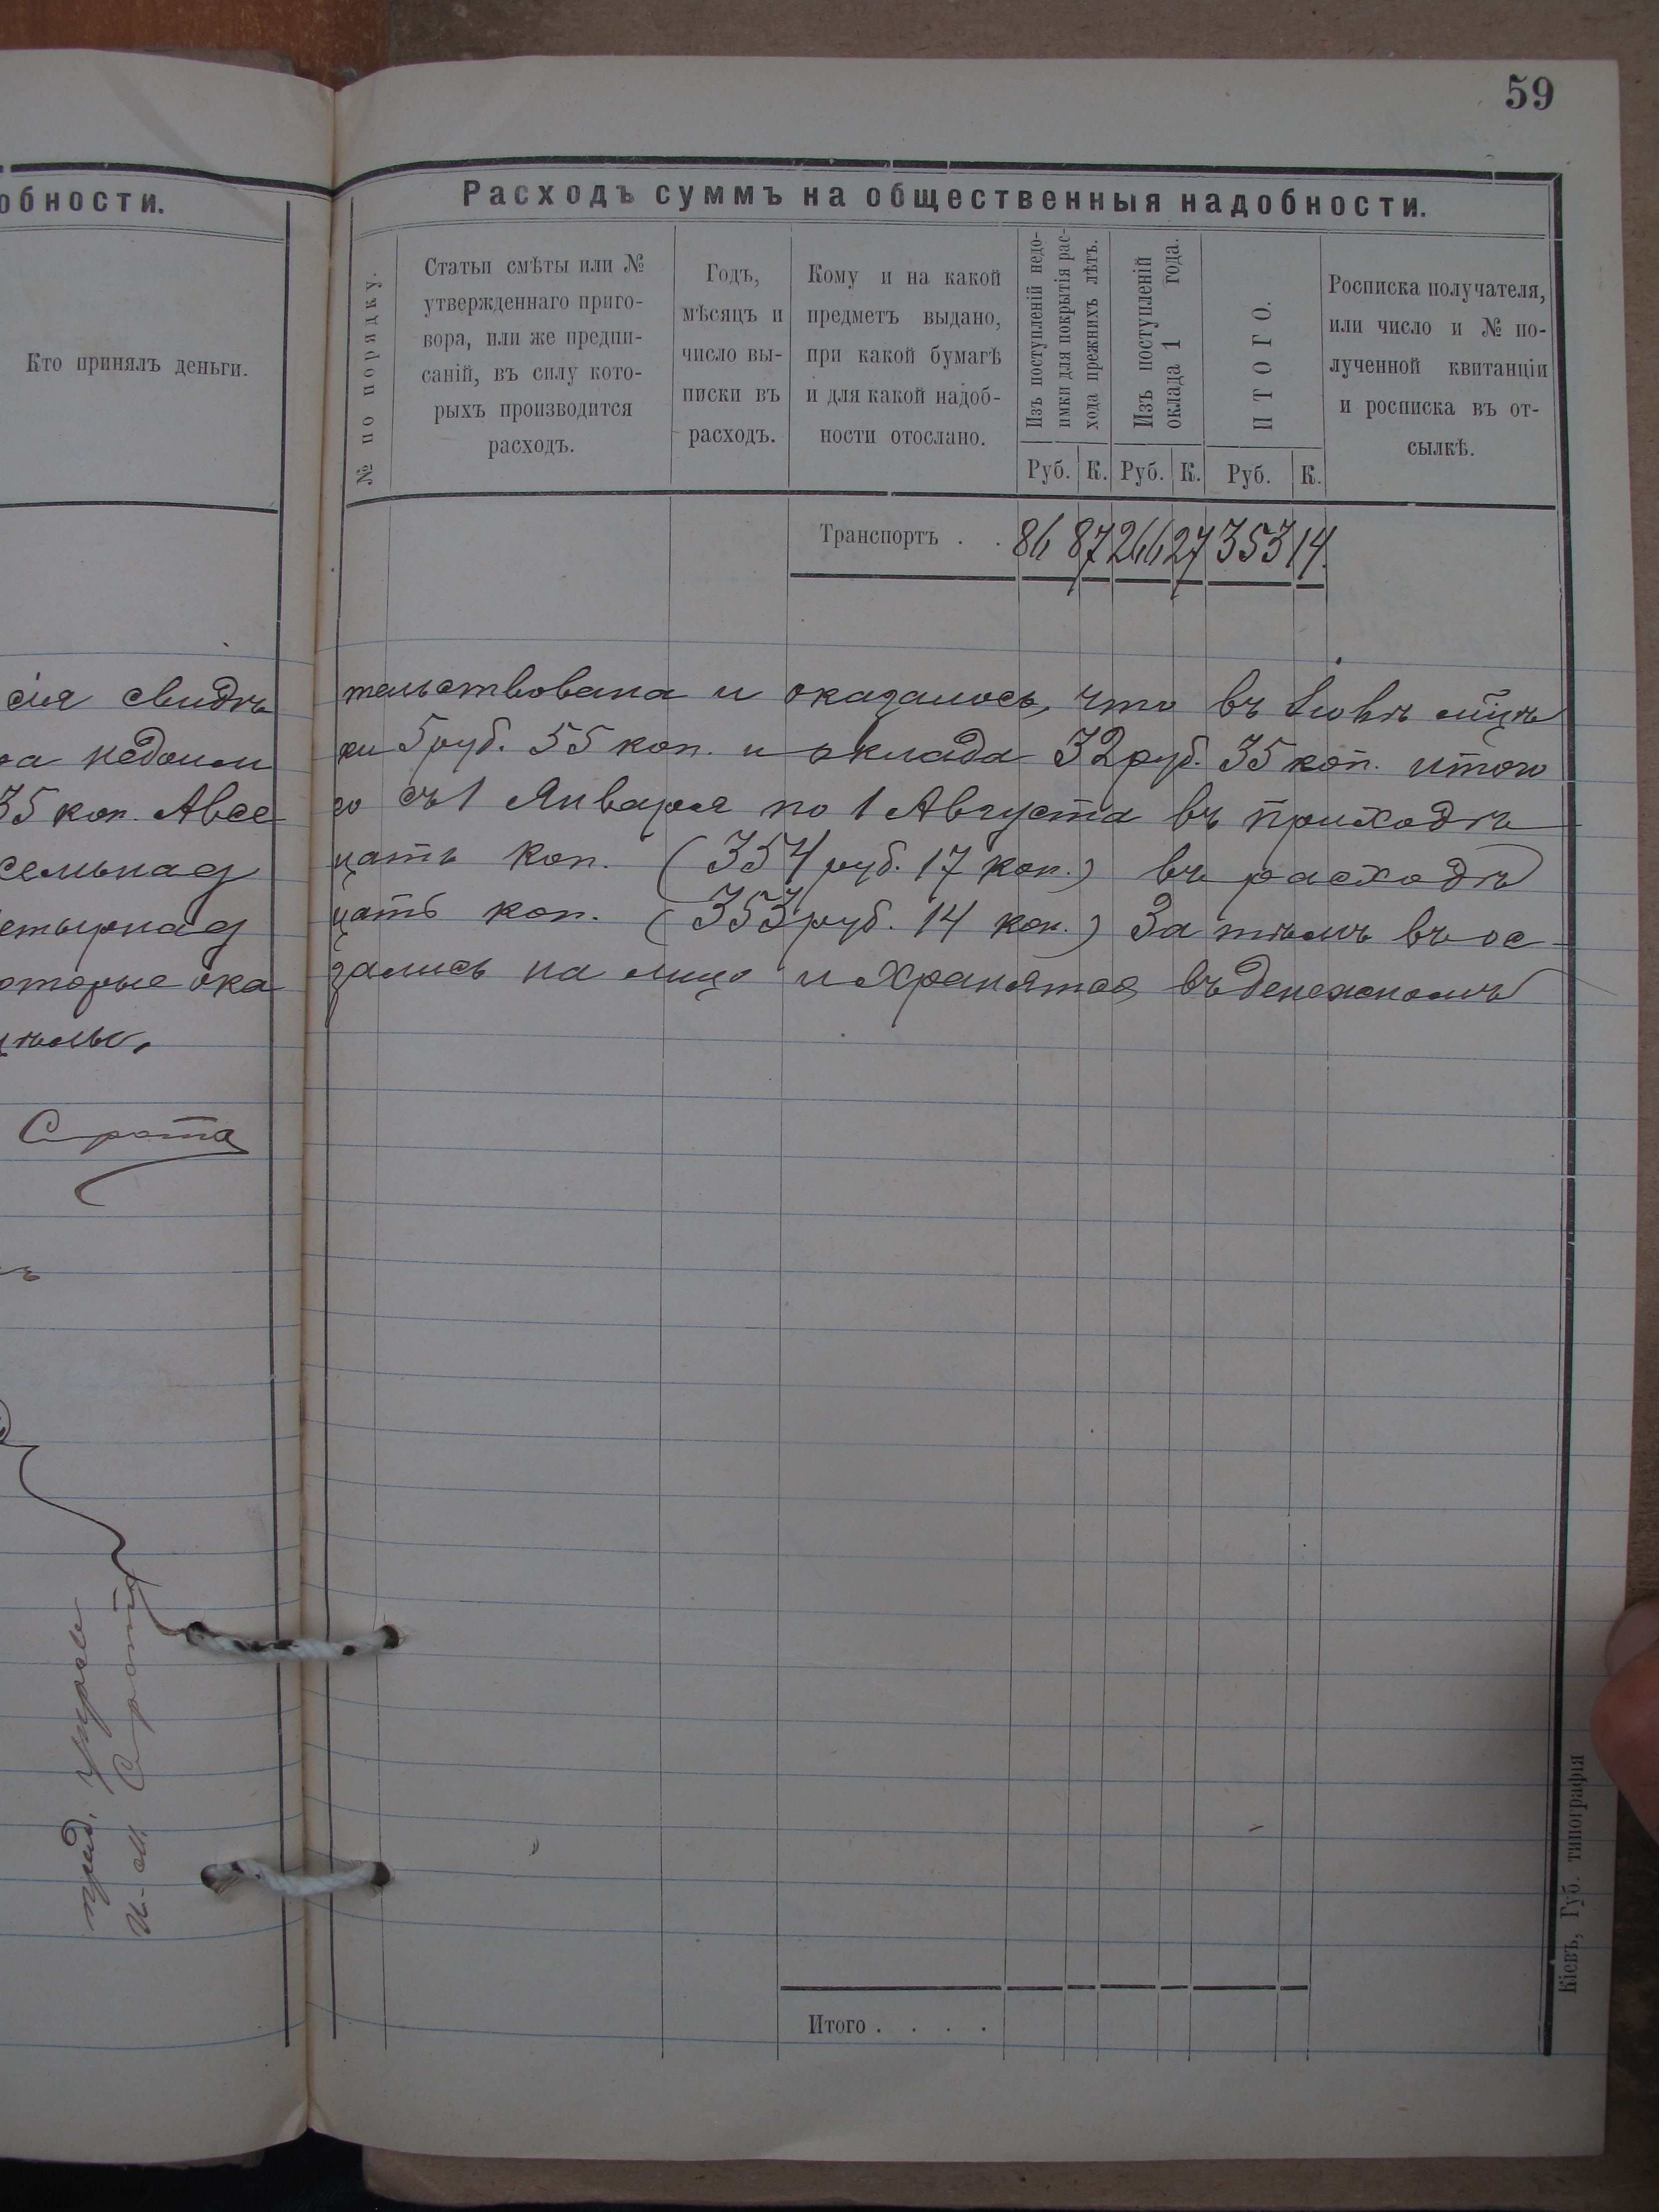 59
обности.
Кто принялъ деньги.
сія свидѣ
35 коп. А все
оторые ока
Сирота
Расходъ суммъ на общественныя надобности.
№ по порядку.
Статьи смѣты или №
утвержденнаго приго-
вора, или же предпи-
саній, въ силу кото-
рыхъ производится
расходъ.
Годъ,
мѣсяцъ и
число вы-
писки въ
расходъ.
Кому и на какой
предметъ выдано,
при какой бумагѣ
и для какой надоб-
ности отослано.
Изъ поступленій недо-
имки для покрытія рас-
хода прежнихъ лѣтъ.
Изъ поступленій
оклада 1 года.
ИТОГО.
Росписка получателя,
или число и № по-
лученной квитанціи
и росписка въ от-
сылкѣ.
Руб. К. Руб. К. Руб. К.
Транспортъ . . 86 87 266 27 353 14.
тельствована и оказалось, что въ Іюлѣ мцѣ
ки 5 руб. 55 коп. и оклада 32 руб. 35 коп. итого
го съ 1 Января по 1 Августа въ приходѣ
цать коп. (354 руб. 17 коп.) въ расходѣ
цать коп. (353 руб. 14 коп.) За тѣмъ въ ос
зались на лицо и хранятся въ денежномъ
Итого . . . .
Кіевъ, Губ. типографія